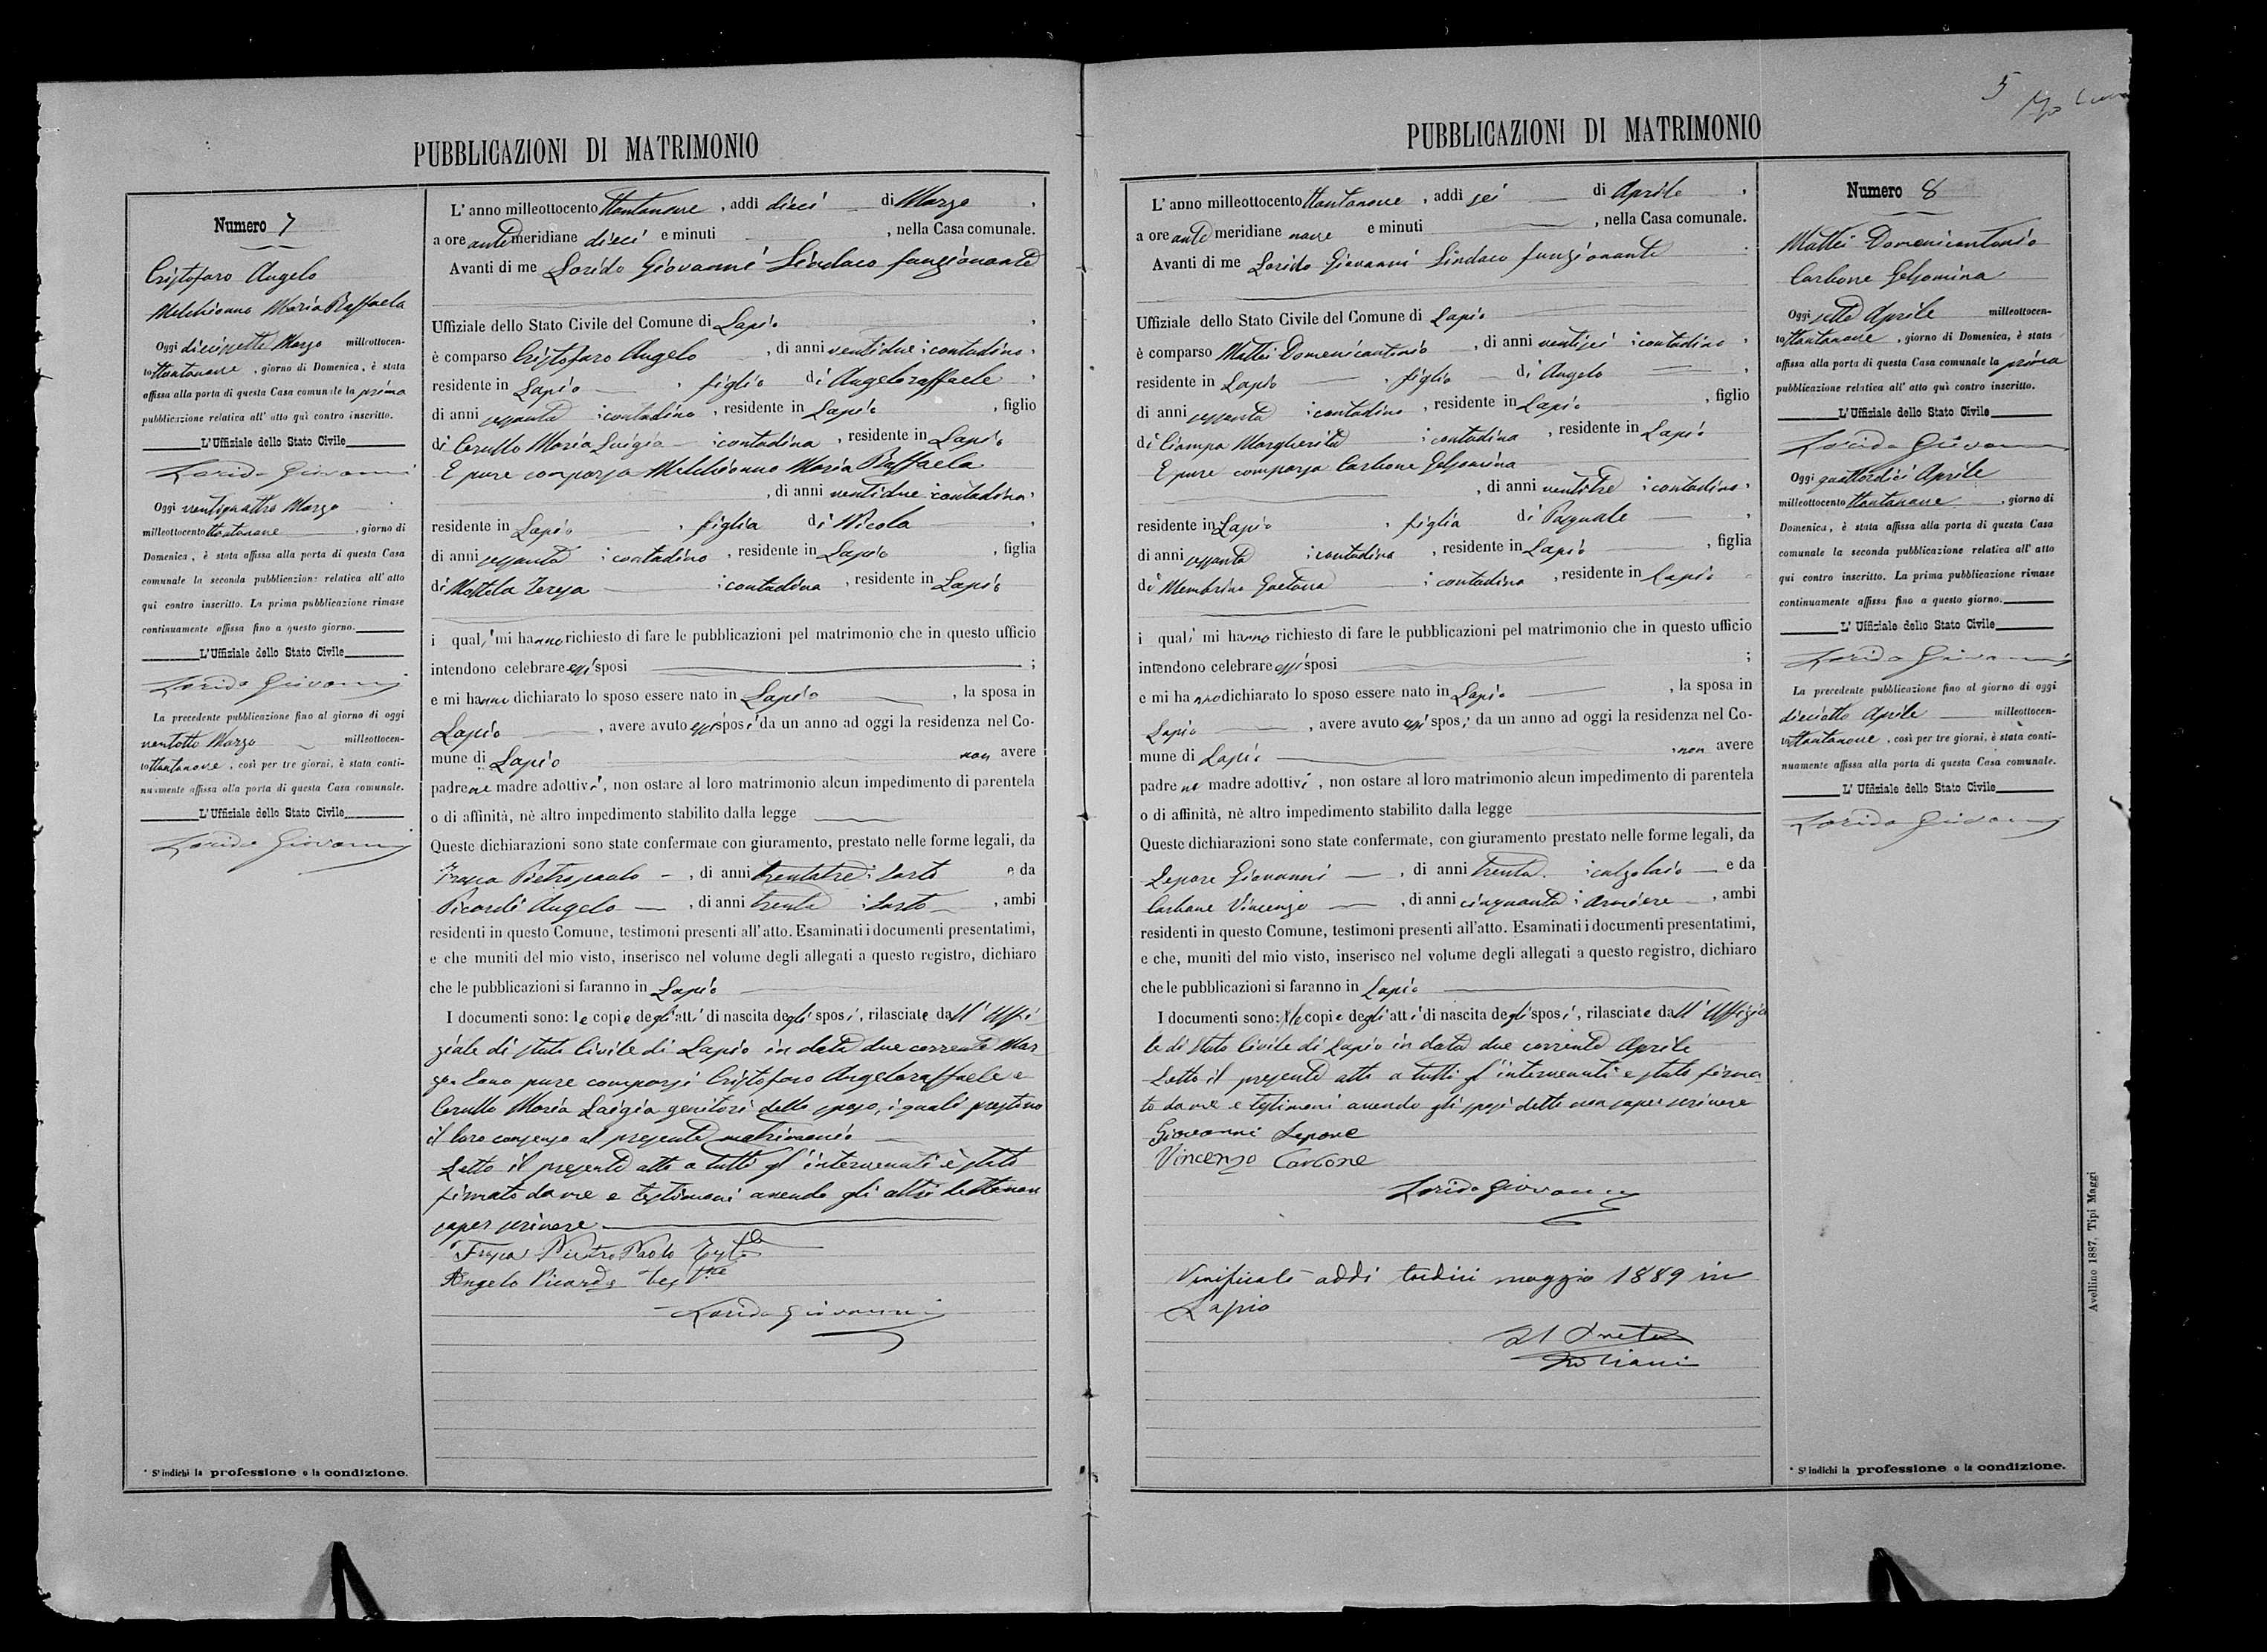 PUBBLICAZIONI DI MATRIMONIO
Numero 7
Cristofaro Angelo
Melchionno Maria Raffaela
Oggi diciassette Marzo milleottocen-
to ttantanove, giorno di Domenica, è stata
affissa alla porta di questa Casa comunale la prima
pubblicazione relativa all' atto quì contro inscritto.
L'Uffiziale dello Stato Civile
Lorido Giovanni
Oggi ventiquattro Marzo
milleottocento ttantanove, giorno di
Domenica, è stata affissa alla porta di questa Casa
comunale la seconda pubblicazione relativa all' atto
qui contro inscritto. La prima pubblicazione rimase
continuamente affissa fino a questo giorno.
L'Uffiziale dello Stato Civile
Lorido Giovanni
La precedente pubblicazione fino al giorno di oggi
ventotto Marzo milleottocen-
to ttantanove, così per tre giorni, è stata conti-
nuamente affissa alla porta di questa Casa comunale.
L'Uffiziale dello Stato Civile
Lorido Giovanni
* S'indichi la professione o la condizione.
L' anno milleottocento ttantanove, addì dieci di Marzo,
a ore antemeridiane dieci e minuti , nella Casa comunale.
Avanti di me Lorido Giovanni Sindaco funzionante
Uffiziale dello Stato Civile del Comune di Lapio,
è comparso Cristofaro Angelo, di anni ventidue contadino,
residente in Lapio, figlio di Angeloraffaele,
di anni sessanta contadino, residente in Lapio, figlio
di Cerullo Maria Luigia contadina, residente in Lapio
E pure comparsa Melchionno Maria Raffaela
, di anni ventidue contadina,
residente in Lapio, figlia di Nicola,
di anni sessanta contadino, residente in Lapio, figlia
di Mottola Teresa contadina, residente in Lapio
i quali mi hanno richiesto di fare le pubblicazioni pel matrimonio che in questo ufficio
intendono celebrare essi sposi ;
e mi hanno dichiarato lo sposo essere nato in Lapio, la sposa in
Lapio, avere avuto essi sposi da un anno ad oggi la residenza nel Co-
mune di Lapio non avere
padre ne madre adottivi, non ostare al loro matrimonio alcun impedimento di parentela
o di affinità, nè altro impedimento stabilito dalla legge
Queste dichiarazioni sono state confermate con giuramento, prestato nelle forme legali, da
Frasca Pietropaolo, di anni trentatre sarto e da
Picardi Angelo, di anni trenta sarto, ambi
residenti in questo Comune, testimoni presenti all'atto. Esaminati i documenti presentatimi,
e che muniti del mio visto, inserisco nel volume degli allegati a questo registro, dichiaro
che le pubblicazioni si faranno in Lapio
I documenti sono: le copie degli atti di nascita degli sposi, rilasciate dall' Uffi-
ziale di stato Civile di Lapio in data due corrente Mar-
zo. Sono pure comparsi Cristofaro Angeloraffaele e
Cerullo Maria Luigia genitori dello sposo, i quali prestano
il loro consenso al presente matrimonio
Letto il presente atto a tutti gl'intervenuti è stato
firmato da me e testimoni avendo gli altri detto non
saper scrivere
Frasca Pietro Paolo
Angelo Picardi
Lorido Giovanni
PUBBLICAZIONI DI MATRIMONIO
5
L' anno milleottocento ttantanove, addì sei di Aprile,
a ore antemeridiane nove e minuti , nella Casa comunale.
Avanti di me Lorido Giovanni Sindaco funzionante
Uffiziale dello Stato Civile del Comune di Lapio
è comparso Mattei Domenicantonio, di anni ventisei contadino,
residente in Lapio, figlio di Angelo,
di anni sessanta contadino, residente in Lapio, figlio
di Ciampa Margherita contadina, residente in Lapio
E pure comparsa Carbone Gelsomina
, di anni ventitre contadina,
residente in Lapio, figlia di Pasquale,
di anni sessanta contadino, residente in Lapio, figlia
di Membrino Gaetana contadina, residente in Lapio
i quali mi hanno richiesto di fare le pubblicazioni pel matrimonio che in questo ufficio
intendono celebrare essi sposi ;
e mi hanno dichiarato lo sposo essere nato in Lapio, la sposa in
Lapio, avere avuto essi sposi da un anno ad oggi la residenza nel Co-
mune di Lapio non avere
padre ne madre adottivi, non ostare al loro matrimonio alcun impedimento di parentela
o di affinità, nè altro impedimento stabilito dalla legge
Queste dichiarazioni sono state confermate, con giuramento prestato nelle forme legali, da
Lepore Giovanni, di anni trenta calzolaio e da
Carbone Vincenzo, di anni cinquanta usciere, ambi
residenti in questo Comune, testimoni presenti all'atto. Esaminati i documenti presentatimi,
e che, muniti del mio visto, inserisco nel volume degli allegati a questo registro, dichiaro
che le pubblicazioni si faranno in Lapio
I documenti sono: le copie degli atti di nascita degli sposi, rilasciate dall' Uffizia
le di stato Civile di Lapio in data due corrente Aprile
Letto il presente atto a tutti gl'intervenuti è stato firma-
to da me e testimoni avendo gli sposi detto non saper scrivere
Giovanni Lepore
Vincenzo Carbone
Lorido Giovanni
Verificato addì tredici maggio 1889 in
Lapio
Il Pretore
Numero 8
Mattei Domenicantonio
Carbone Gelsomina
Oggi sette Aprile milleottocen-
to ttantanove, giorno di Domenica, è stata
affissa alla porta di questa Casa comunale la prima
pubblicazione relativa all' atto quì contro inscritto.
L'Uffiziale dello Stato Civile
Lorido Giovanni
Oggi quattordici Aprile
milleottocento ttantanove, giorno di
Domenica, è stata affissa alla porta di questa Casa
comunale la seconda pubblicazione relativa all' atto
qui contro inscritto. La prima pubblicazione rimase
continuamente affissa fino a questo giorno.
L' Uffiziale dello Stato Civile
Lorido Giovanni
La precedente pubblicazione fino al giorno di oggi
dieciotto Aprile milleottocen-
to ttantanove, così per tre giorni, è stata conti-
nuamente affissa alla porta di questa Casa comunale.
L' Uffiziale dello Stato Civile
Lorido Giovanni
* S'indichi la professione o la condizione.
Avellino 1887, Tipi Maggi